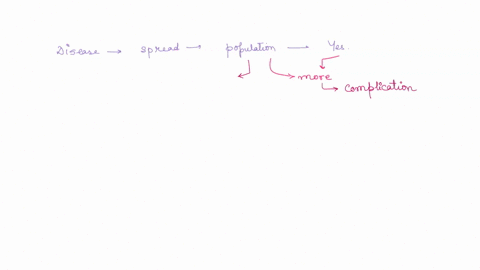 Disease → spread → population → Yes.
more
complication